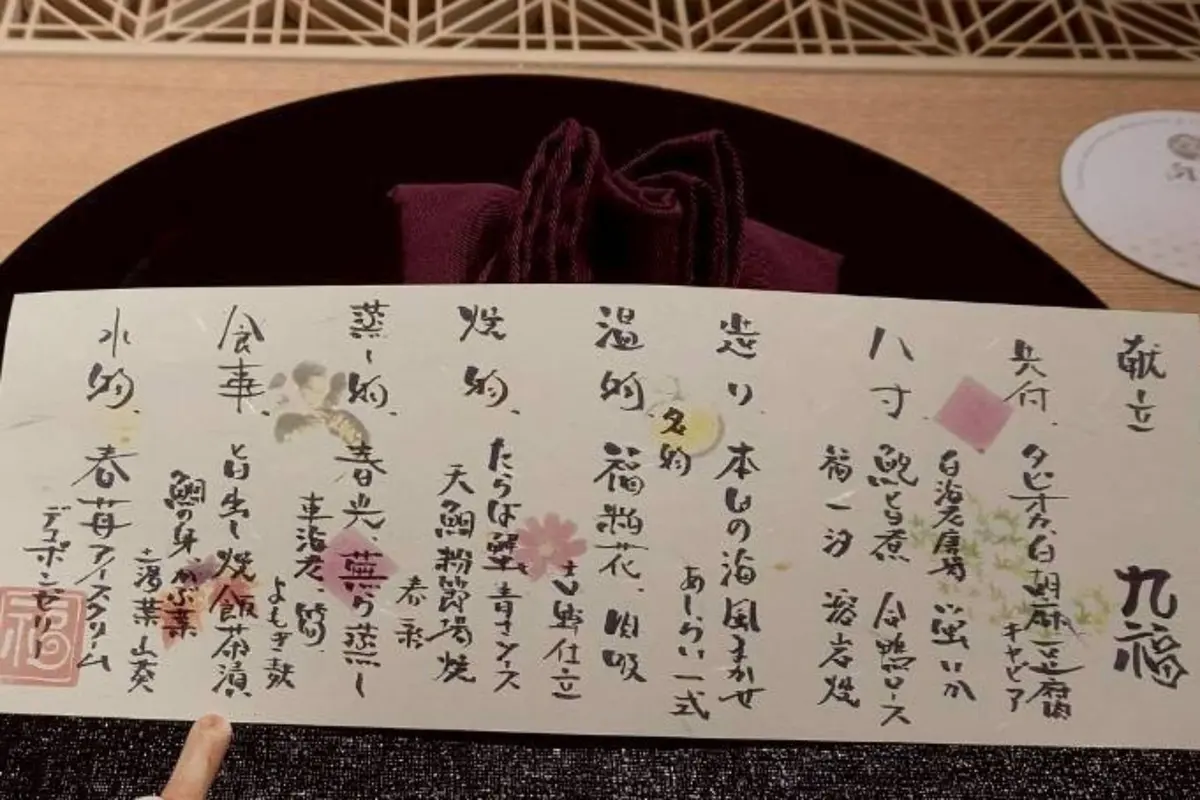 献立
九福
先付、
タピオカ、白胡麻豆腐
キャビア
八寸
白海老唐揚 蛍いか
鮑旨煮 合鴨ロース
福一汐 溶岩焼
造り、
本日の海風まかせ
あしらい一式
名物
温物、
福粕花、肉吸
吉野仕立
焼物、
たらば蟹 青さソース
天鯛粉節揚焼
春彩
蒸し物、
春光蕪ら蒸し
車海老、鰻
よもぎ麩
食事、
旨出し焼飯茶漬
鯛の身 かぶ葉
湯葉 山葵
水物、
春苺アイスクリーム
デコポンゼリー
福